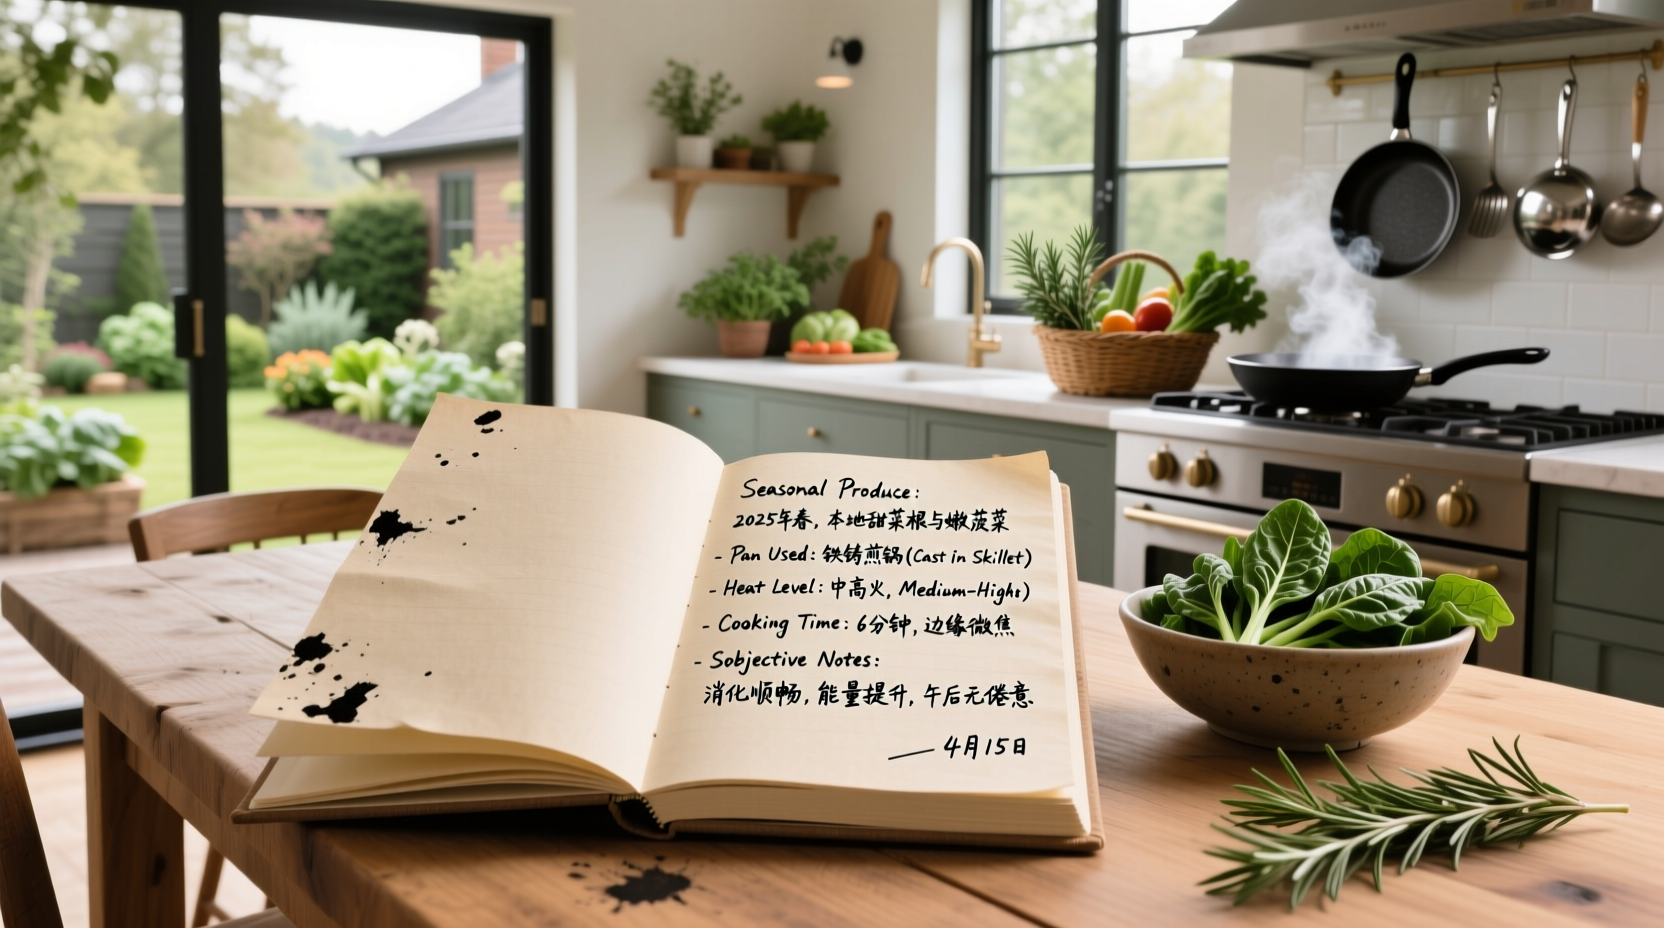 Seasonal Produce:
2025年春, 本地甜菜根与嫩菠菜
- Pan Used: 铁铸煎锅(Cast in Skillet)
- Heat Level: 中高火, Medium-High)
- Cooking Time: 6分钟, 边缘微焦
- Sobjective Notes:
消化顺畅, 能量提升, 午后无倦意.
—— 4月15日